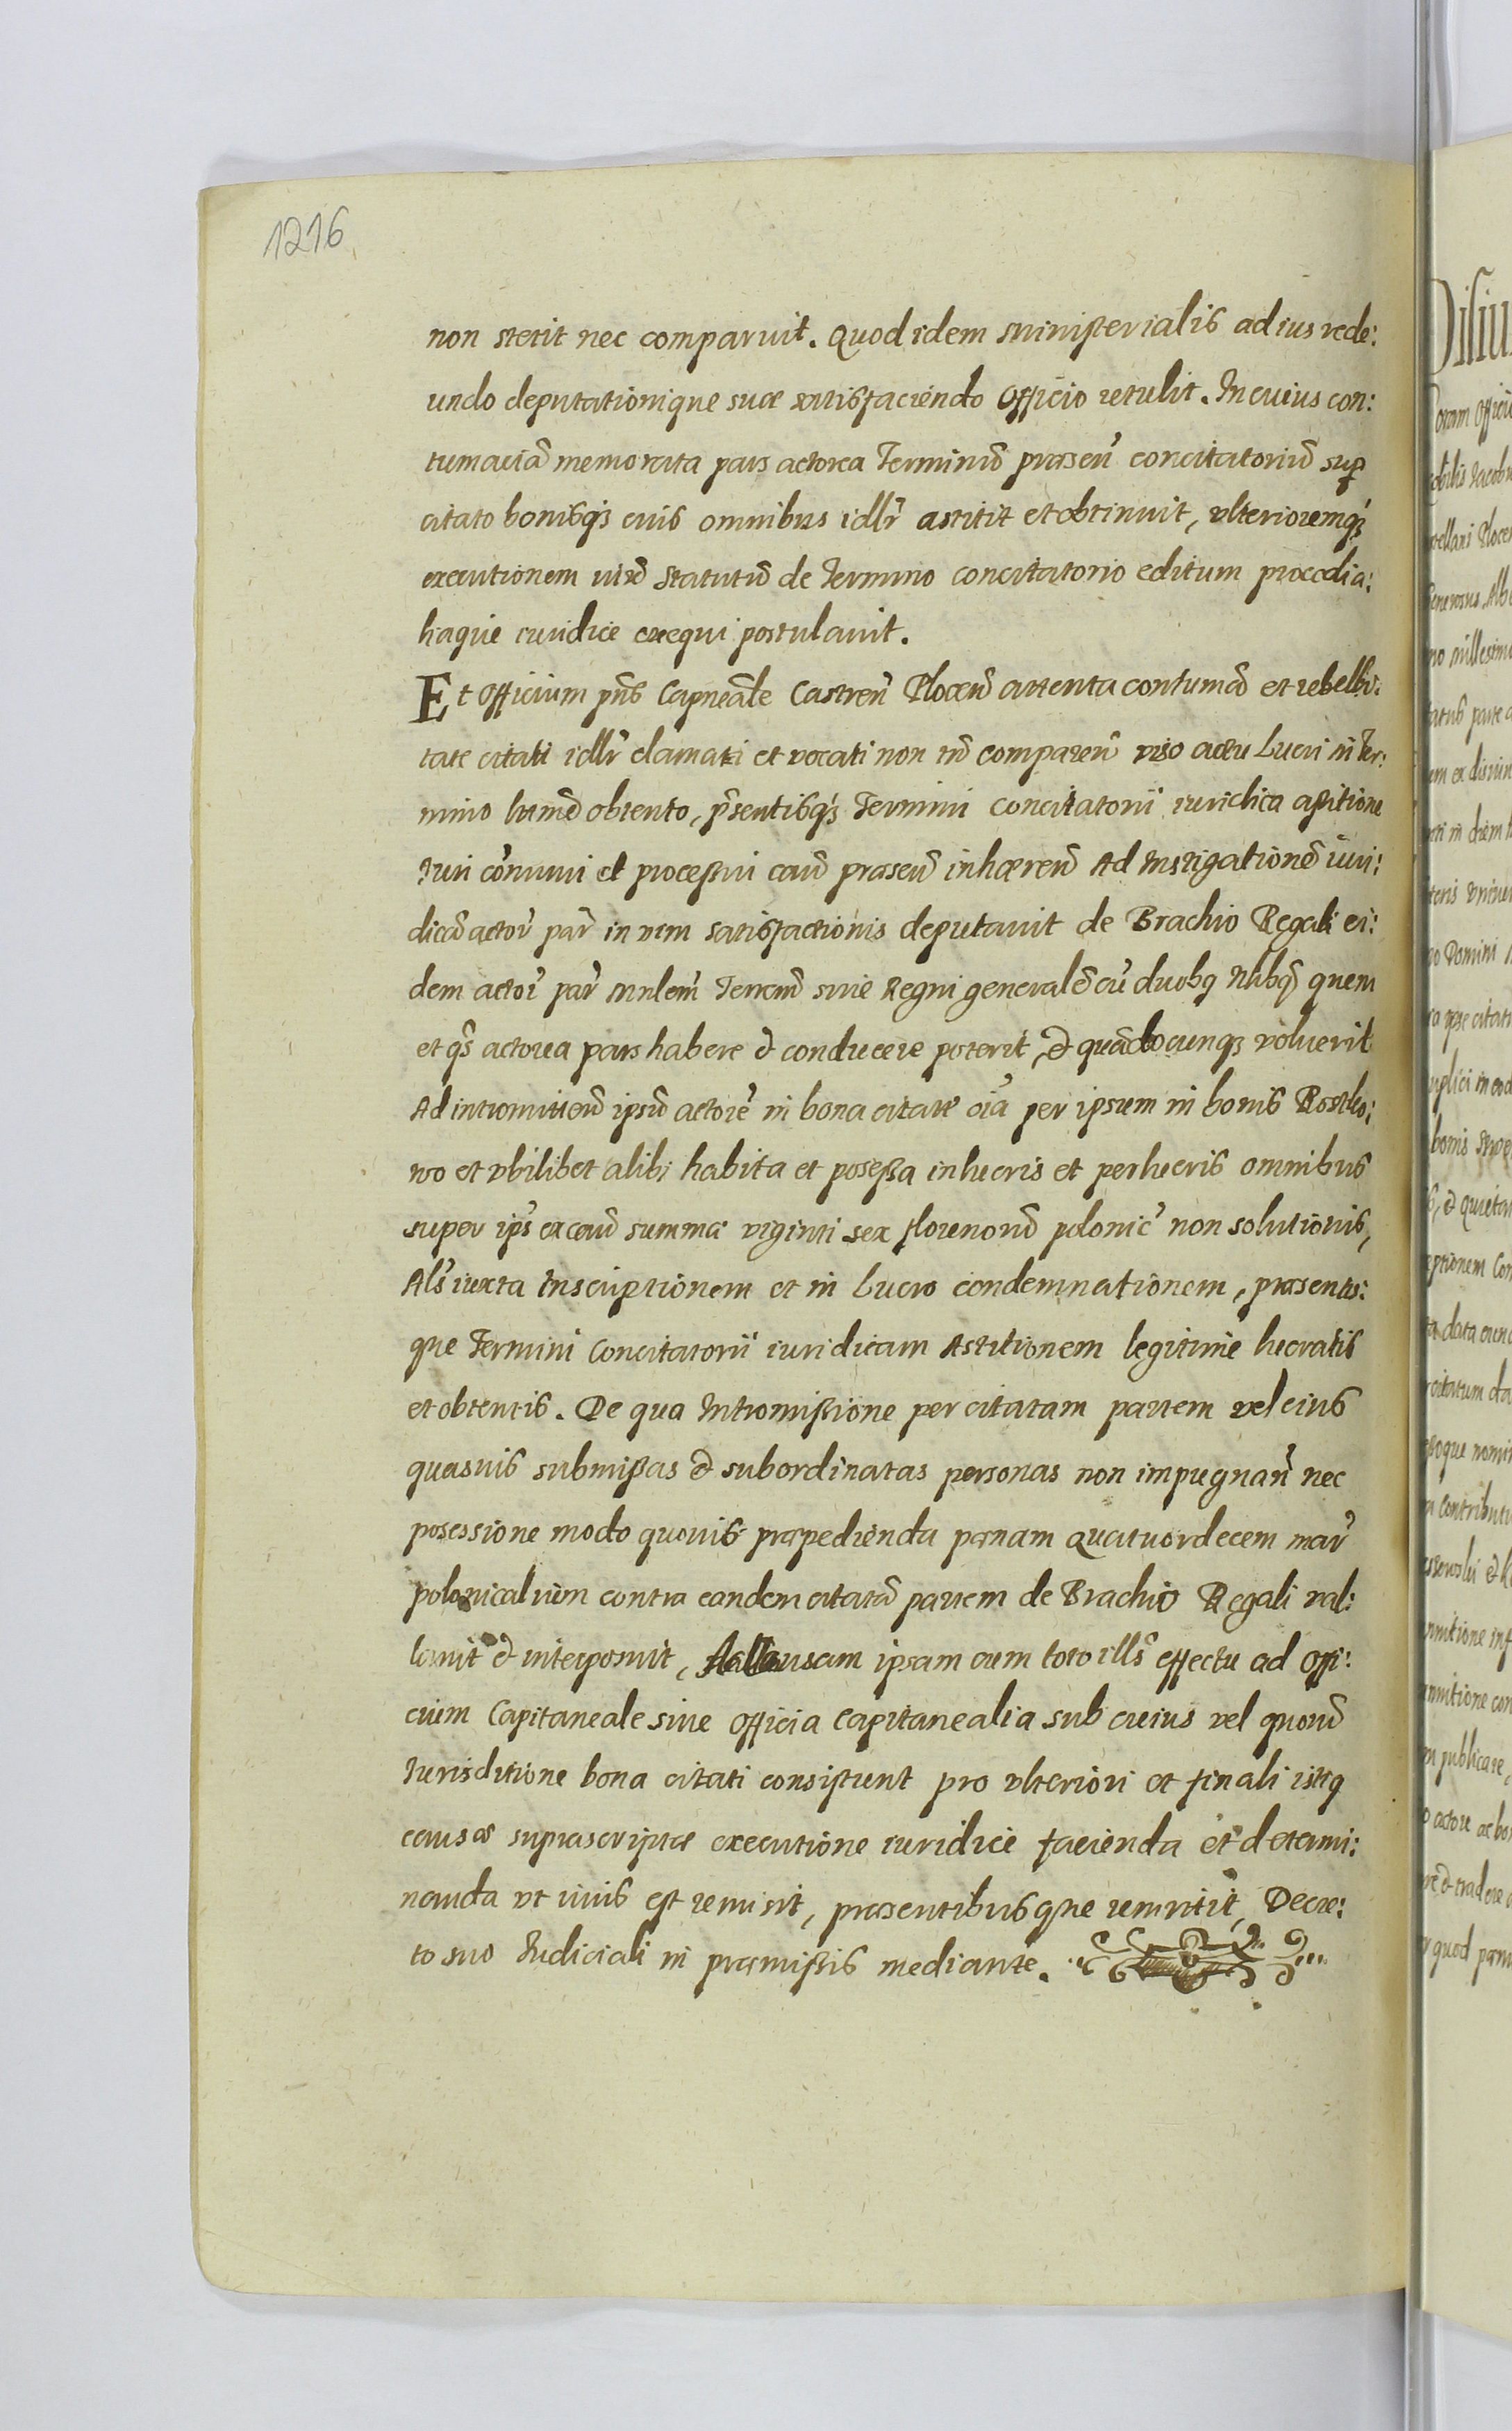 1216
non stetit nec comparuit. Quod idem ministerialis ad ius rede:
undo deputationique suae satisfaciendo Officio retulit. In cuius con:
tumaciã memorata pars actorea Terminũ praeseñ concitatoriũ sup
citato bonisq3 cuis omnibus idlr astitit et obtinuit, vlterioremq3
executionem iuxũ Statutũ de Termino concitatorio editum procedia:
liaque iuridice exequi postulauit.
Et Officium pñs Capneãle Castreñ Ploceñ attenta contumã et rebelli:
tate citati idlr clamati et vocati non tñ compareñ viso actu Lucri in Ter:
mino hũmẽ obtento, pñsentisq3 Termini concitatorii iuridica astitione
Iuri cõmuni et processui cauũ praeseñ inhaereñ Ad Instigationẽ iuri:
dicã actor par in vim satisfactionis deputauit de Brachio Regali ei:
dem actor par mnlem Terreñ siue Regni generalẽ cũ duobq Nlibq quem
et qs actorea pars habere & conducere poterit, & quãdocunq3 voluerit
Ad intromitteñ ipsũ actorẽ in bona citate oia per ipsum in bonis Rostko:
wo et vbilibet alibi habita et possessa in lucris et perlucris omnibus
super ips ex cauũ summa viginti sex florenorũ polonic non solutionis,
Als iuxta Inscriptionem et in Lucro condemnationem, praesentis:
que Termini Concitatorii iuridicam Astitionem legitime lucratis
et obtentis. De qua Intromissione per citatam partem vel eius
quasuis submissas & subordinatas personas non impugnañ nec
possessione modo quouis praepedienda paenam quatuordecem mar
polonicalium contra eandem citatã partem de Brachio Regali val:
lauit & interposuit, causam ipsam cum toto ills effectu ad Offi:
cium Capitaneale siue Officia Capitanealia sub cuius vel quorũ
Iurisditione bona citati consistunt pro vlteriori et finali istiq
causae suprascriptae executione iuridice facienda et determi:
nanda vt iuris est remisit, praesentibusque remittit, Decre:
to suo Iudiciali in praemissis mediante.